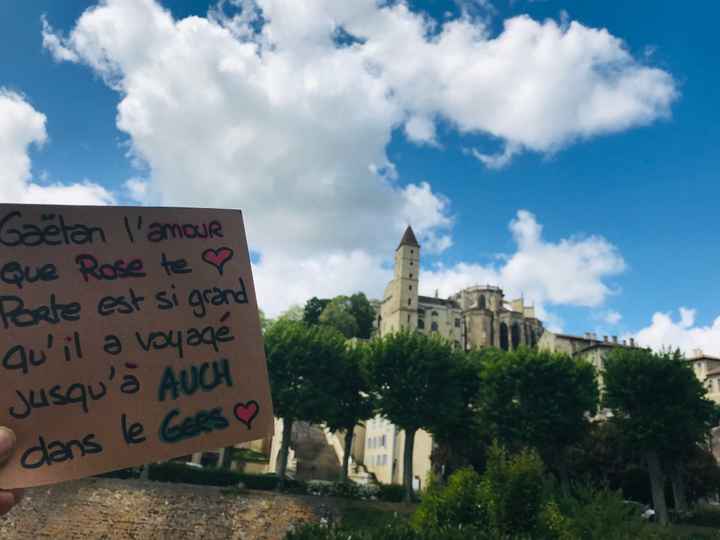 Gaëtan l'amour
que Rose te ♥
Porte est si grand
qu'il a voyagé
jusqu'à AUCH
dans le Gers ♥